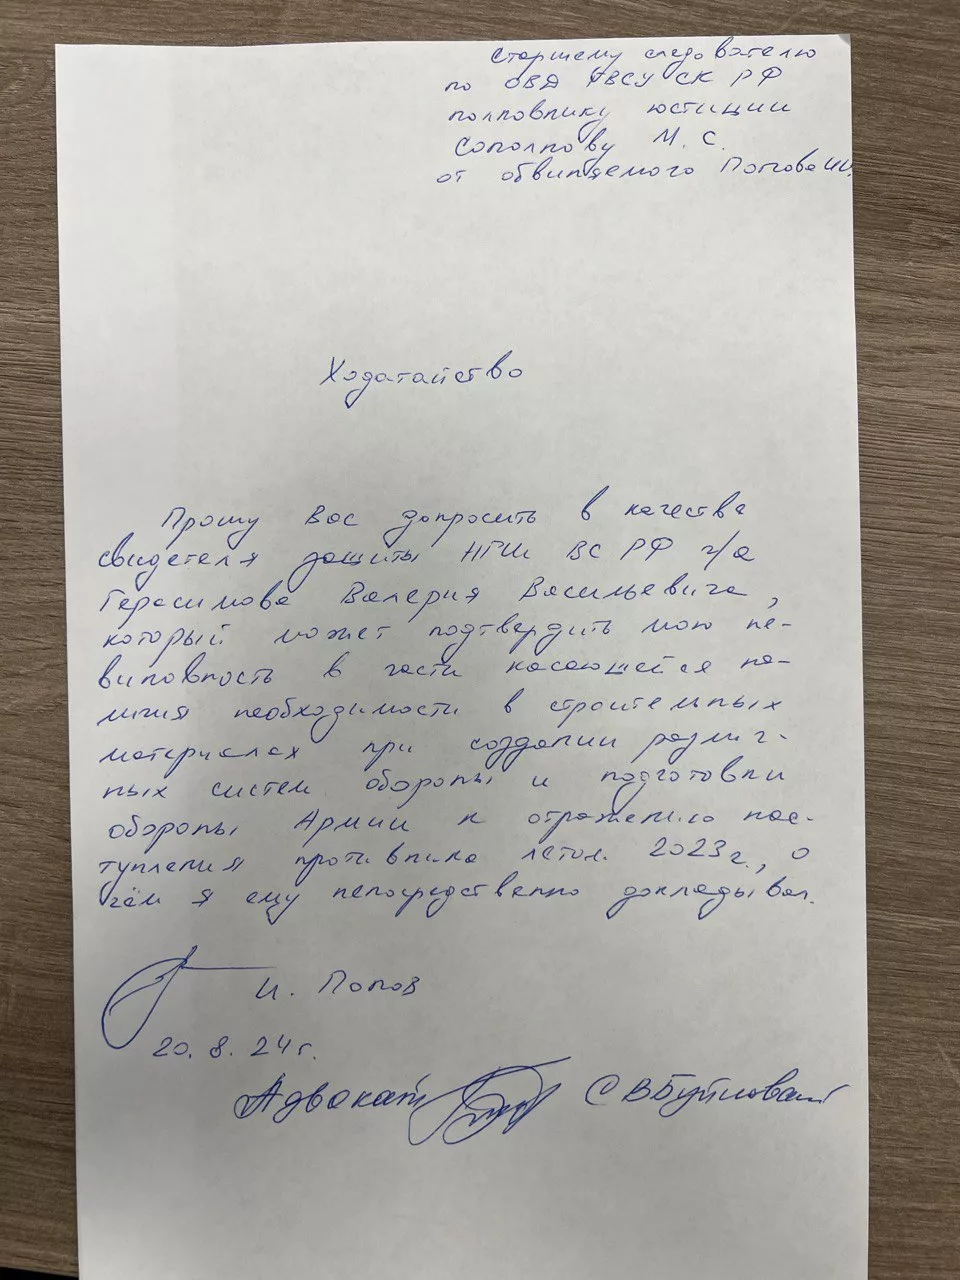 Старшему следователю
по ОВД ГВСУ СК РФ
полковнику юстиции
М. С.
от обвиняемого Попова И.И.
Ходатайство
Прошу Вас допросить в качестве
свидетеля защиты НГШ ВС РФ г/а
Герасимова Валерия Васильевича,
который может подтвердить мою не-
виновность в части касающейся на-
личия необходимости в строительных
материалах при создании различ-
ных систем обороны и подготовки
обороны Армии к отражению нас-
тупления противника летом 2023г., о
чём я ему непосредственно докладывал.
И. Попов
20. 8. 24г.
Адвокат С В Буйновский